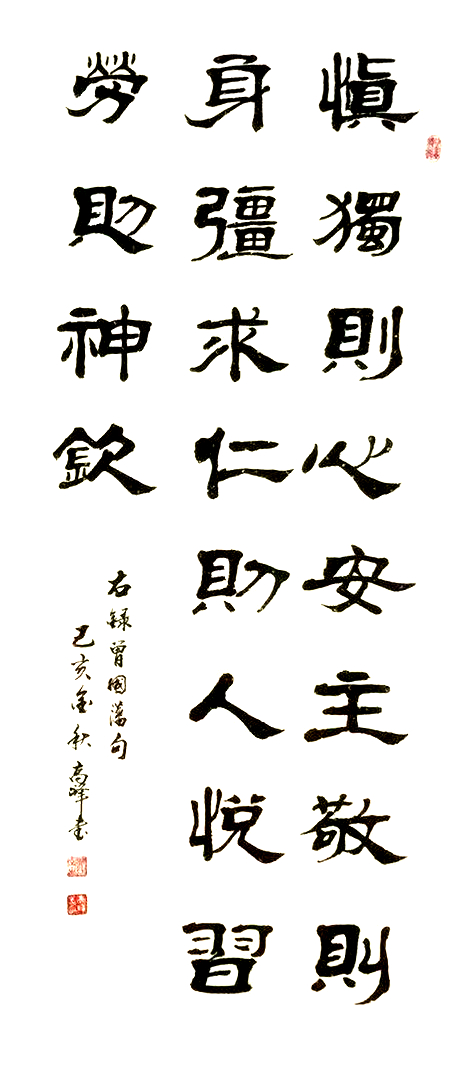 慎獨則心安主敬則
身彊求仁則人悅習
勞則神欽
右録曾國藩句
己亥金秋高峰書